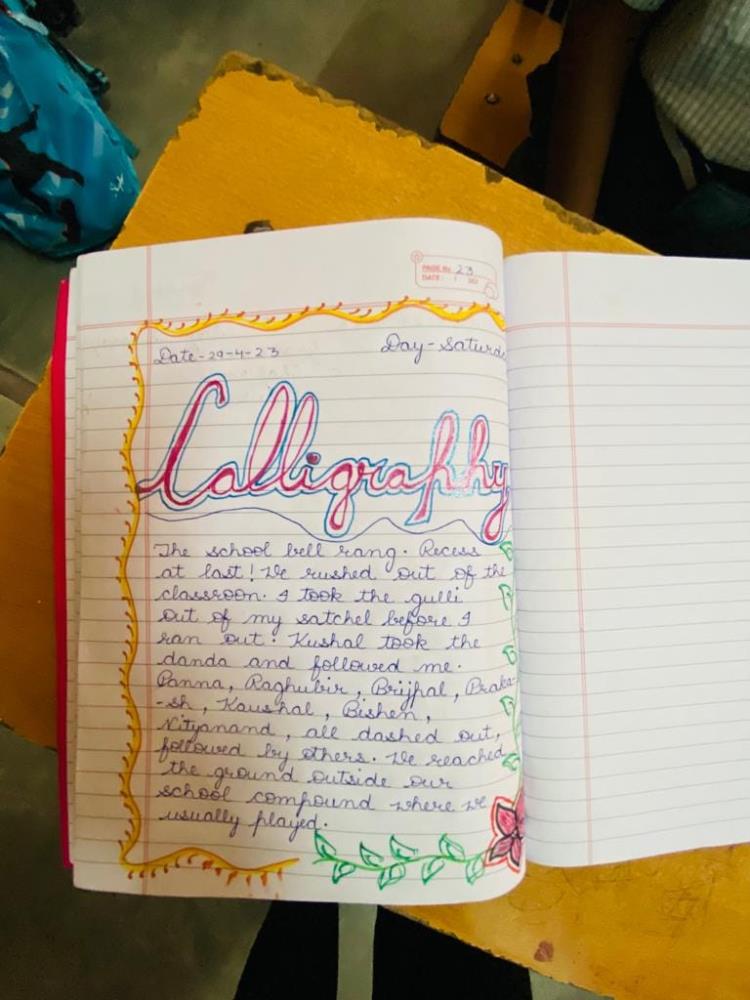 PAGE No. 23
DATE:
Date-29-4-23
Day-Saturda
Calligraphy
The school bell rang. Recess
at last! We rushed out of the
classroon. I took the gulli
out of my satchel before I
ran out. Kushal took the
danda and followed me.
Panna, Raghubir, Brijpal, Praka-
-sh, Kaushal, Bishen,
Nityanand, all dashed out,
followed by others. We reached
the ground outside our
school compound where we
usually played.